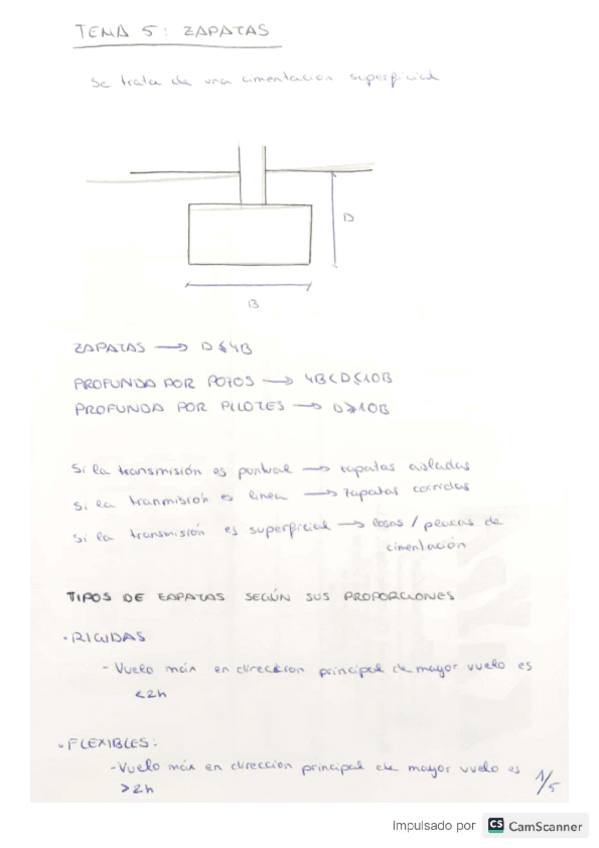 TEMA 5: ZAPATAS
Se trata de una cimentacion superficial
D
B
ZAPATAS → D ≤ 4B
PROFUNDA POR POZOS → 4B < D ≤ 10B
PROFUNDA POR PILOTES → D ≥ 10B
Si la transmisión es puntual → zapatas aisladas
Si la tranmisión es linea → zapatas corridas
Si la transmisión es superficial → losas / placas de
cimentación
TIPOS DE ZAPATAS SEGÚN SUS PROPORCIONES
· RIGIDAS
- Vuelo máx en direccion principal de mayor vuelo es
<2h
· FLEXIBLES:
- Vuelo máx en direccion principal de mayor vuelo es
>2h
1/5
Impulsado por CS CamScanner